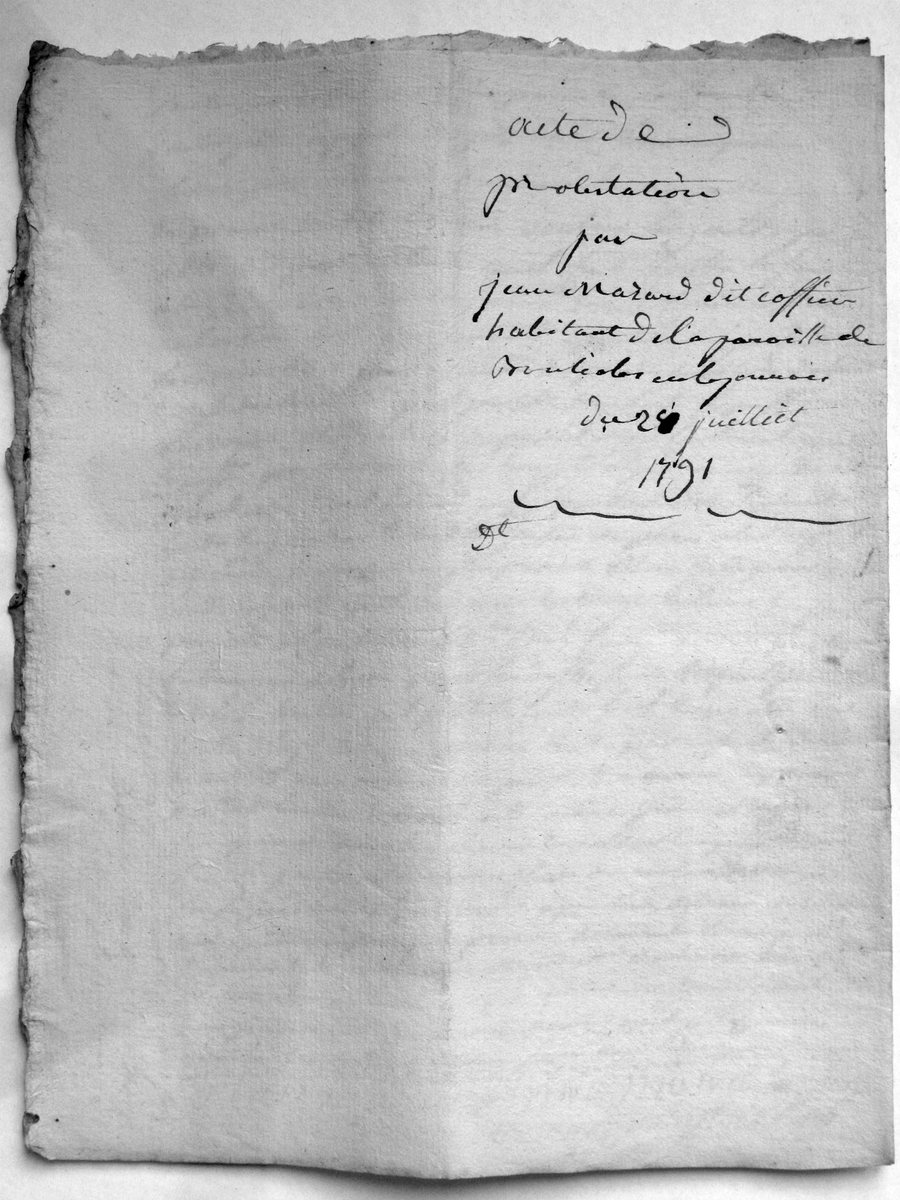 acte de
protestation
par
jean Mazard dit coffieu
habitant de la paroisse de
en lyonnois
du 24 juilliet
1791
Dt